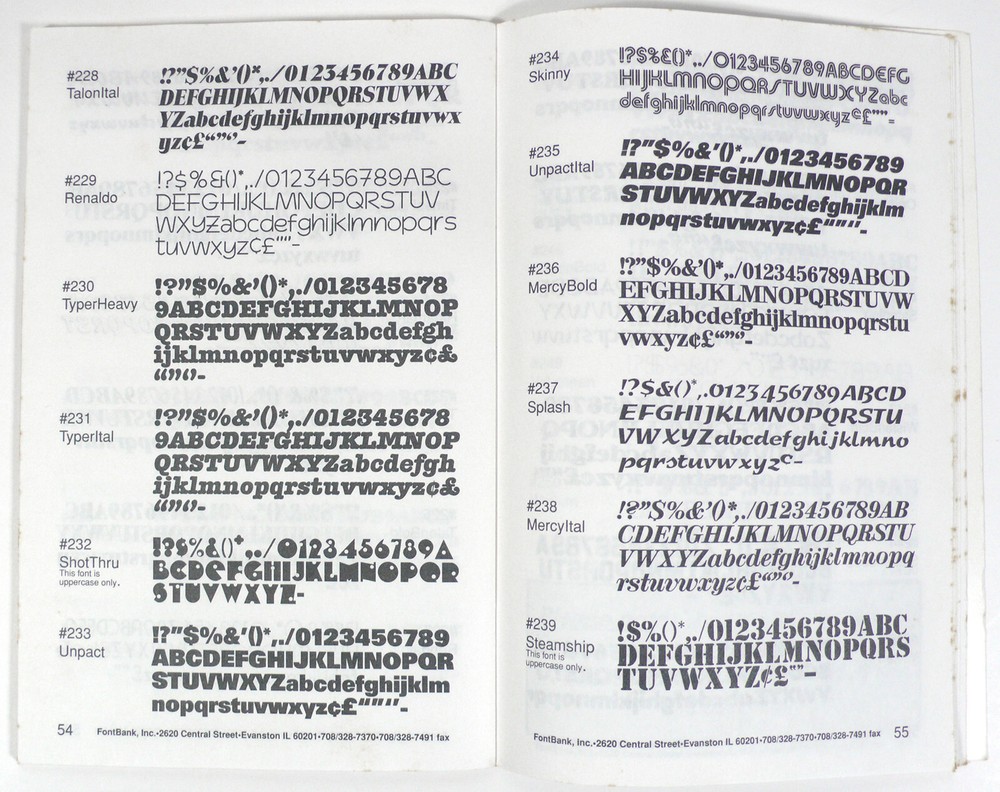 #228
TalonItal
!?"$%&'()*,./0123456789ABC
DEFGHIJKLMNOPQRSTUVWX
YZabcdefghijklmnopqrstuvwx
yz¢£“”‘’-
#229
Renaldo
!?$%&()*,./0123456789ABC
DEFGHIJKLMNOPQRSTUV
WXYZabcdefghijklmnopqrs
tuvwxyz¢£""-
#230
TyperHeavy
!?"$%&'()*,./012345678
9ABCDEFGHIJKLMNOP
QRSTUVWXYZabcdefgh
ijklmnopqrstuvwxyz¢£
“”‘’-
#231
TyperItal
!?"$%&'()*,./012345678
9ABCDEFGHIJKLMNOP
QRSTUVWXYZabcdefgh
ijklmnopqrstuvwxyz¢£
“”‘’-
#232
ShotThru
This font is
uppercase only.
!?$%&()*,./0123456789A
BCDEFGHIJKLMNOPQR
STUVWXYZ-
#233
Unpact
!?"$%&'()*,./0123456789
ABCDEFGHIJKLMNOPQR
STUVWXYZabcdefghijklm
nopqrstuvwxyz¢£“”‘’-
54
FontBank, Inc.•2620 Central Street•Evanston IL 60201•708/328-7370•708/328-7491 fax
#234
Skinny
!?$%£()*,./0123456789ABCDEFG
HIJKLMNOPQRSTUVWXYZabc
defghijklmnopqrstuvwxyz¢£""-
#235
UnpactItal
!?"$%&'()*,./0123456789
ABCDEFGHIJKLMNOPQR
STUVWXYZabcdefghijklm
nopqrstuvwxyz¢£“”‘’-
#236
MercyBold
!?"$%&'()*,./0123456789ABCD
EFGHIJKLMNOPQRSTUVW
XYZabcdefghijklmnopqrstu
vwxyz¢£“”‘’-
#237
Splash
!?$&()*,.0123456789ABCD
EFGHIJKLMNOPQRSTU
VWXYZabcdefghijklmno
pqrstuvwxyz¢-
#238
MercyItal
!?"$%&'()*,./0123456789AB
CDEFGHIJKLMNOPQRSTU
VWXYZabcdefghijklmnopq
rstuvwxyz¢£“”‘’-
#239
Steamship
This font is
uppercase only.
!$%()*,./0123456789ABC
DEFGHIJKLMNOPQRS
TUVWXYZ¢£""-
FontBank, Inc.•2620 Central Street•Evanston IL 60201•708/328-7370•708/328-7491 fax
55